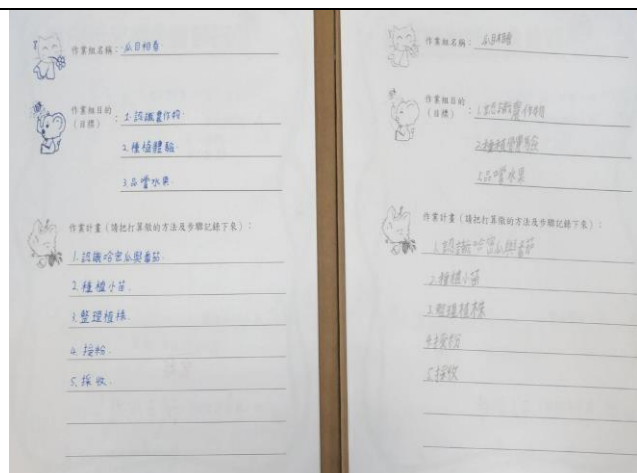 作業組名稱：瓜目相看
作業組目的
（目標）：1.認識農作物.
2.種植體驗.
3.品嚐水果.
作業計畫（請把打算做的方法及步驟記錄下來）：
1.認識哈密瓜與番茄.
2.種植小苗.
3.整理植株.
4.授粉.
5.採收.
作業組名稱：瓜目相看
作業組目的
（目標）：1.認識農作物
2.種植體驗
3.品嚐水果
作業計畫（請把打算做的方法及步驟記錄下來）：
1.認識哈密瓜與番茄
2.種植小苗
3.整理植株
4.授粉
5.採收